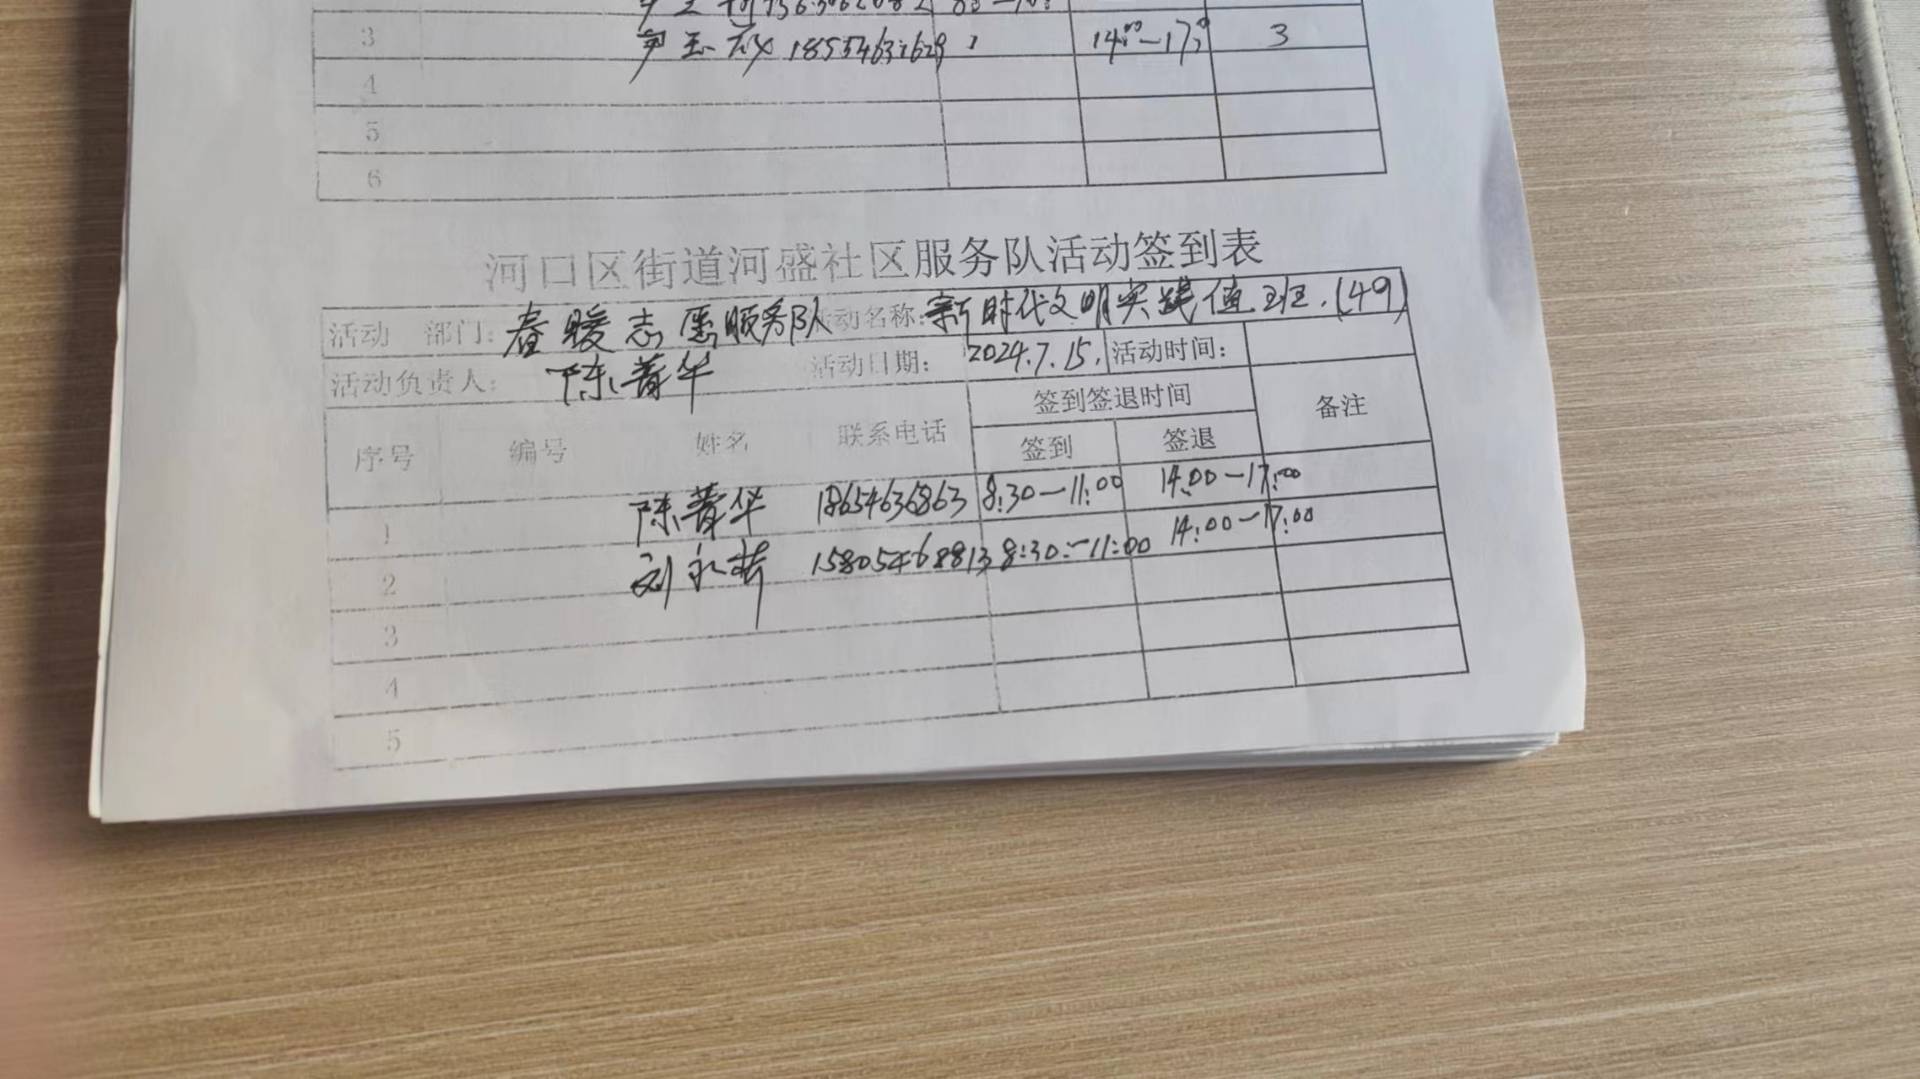 3 尹玉 18554631629 14:00-17:0 3
4
5
6
河口区街道河盛社区服务队活动签到表
活动 部门: 春暖志愿服务队 活动名称: 新时代文明实践值班.(49)
活动负责人: 陈菁华 活动日期: 2024.7.15. 活动时间:
序号 编号 姓名 联系电话 签到签退时间 备注
签到 签退
1 陈菁华 18654636863 8:30-11:00 14:00-17:00
2 刘永 15805468813 8:30-11:00 14:00-17:00
3
4
5